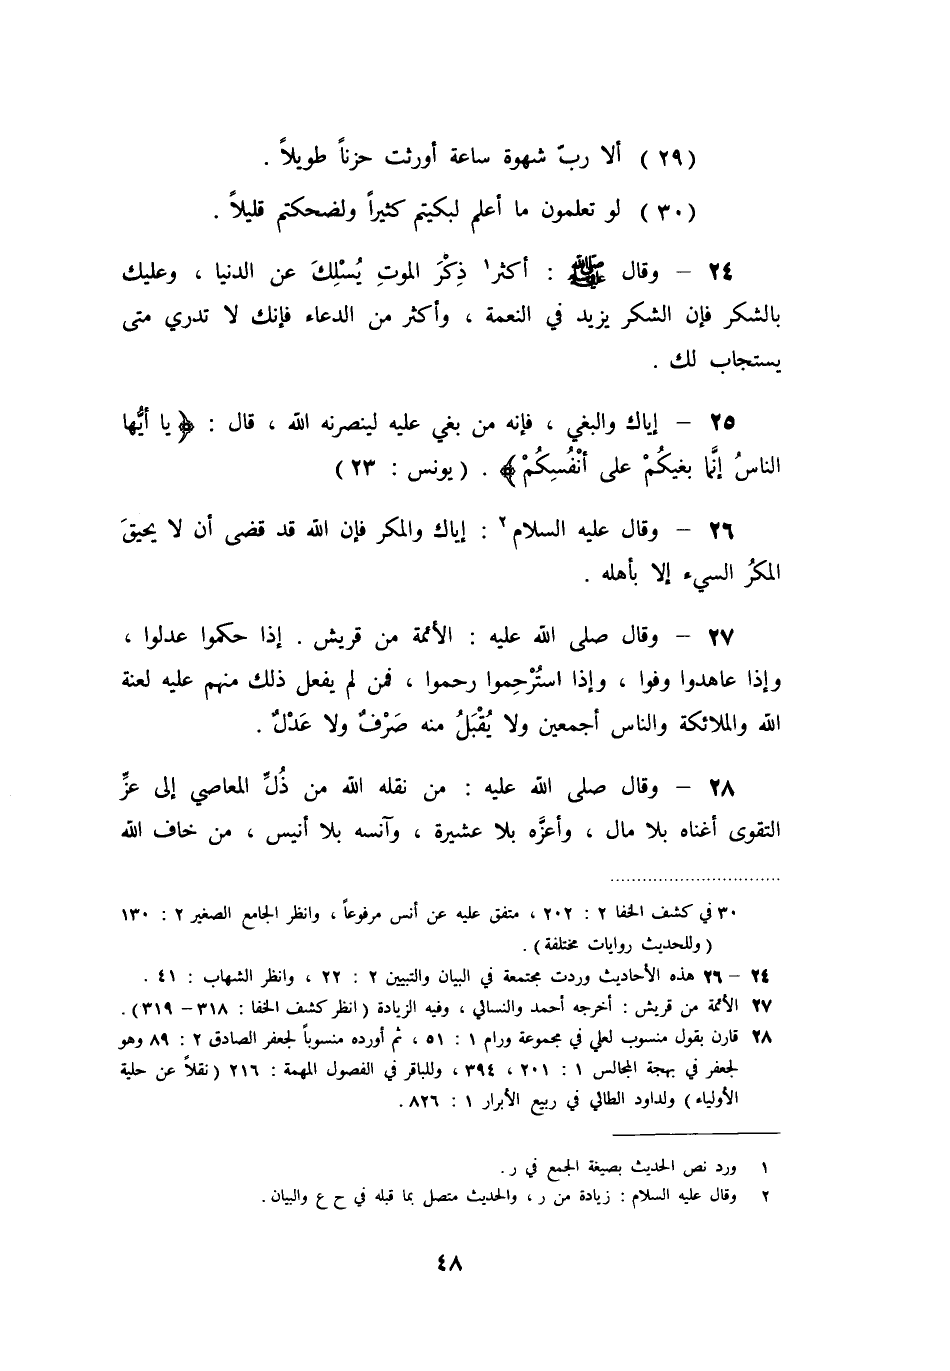 (٢٩) ألا ربّ شهوة ساعة أورثت حزناً طويلاً .
(٣٠) لو تعلمون ما أعلم لبكيتم كثيراً ولضحكتم قليلاً .
٢٤ – وقال ﷺ : أكثر١ ذِكْرَ الموتِ يُسْلِكَ عن الدنيا ، وعليك
بالشكر فإن الشكر يزيد في النعمة ، وأكثر من الدعاء فإنك لا تدري متى
يستجاب لك .
٢٥ – إياك والبغي ، فإنه من بغي عليه لينصرنه الله ، قال : ﴿يا أيُّها
الناسُ إنَّما بغيكُمْ على أنْفُسِكُمْ﴾ . (يونس : ٢٣)
٢٦ – وقال عليه السلام٢ : إياك والمكر فإن الله قد قضى أن لا يحيقَ
المكرُ السيء إلا بأهله .
٢٧ – وقال صلى الله عليه : الأئمة من قريش . إذا حكموا عدلوا ،
وإذا عاهدوا وفوا ، وإذا استُرْحِموا رحموا ، فمن لم يفعل ذلك منهم عليه لعنة
الله والملائكة والناس أجمعين ولا يُقْبَلُ منه صَرْفٌ ولا عَدْلٌ .
٢٨ – وقال صلى الله عليه : من نقله الله من ذُلِّ المعاصي إلى عزِّ
التقوى أغناه بلا مال ، وأعزَّه بلا عشيرة ، وآنسه بلا أنيس ، من خاف الله
٣٠ في كشف الخفا ٢ : ٢٠٢ ، متفق عليه عن أنس مرفوعاً ، وانظر الجامع الصغير ٢ : ١٣٠
(وللحديث روايات مختلفة) .
٢٤ – ٢٦ هذه الأحاديث وردت مجتمعة في البيان والتبيين ٢ : ٢٢ ، وانظر الشهاب : ٤١ .
٢٧ الأئمة من قريش : أخرجه أحمد والنسائي ، وفيه الزيادة (انظر كشف الخفا : ٣١٨ – ٣١٩) .
٢٨ قارن بقول منسوب لعلي في مجموعة ورام ١ : ٥١ ، ثم أورده منسوباً لجعفر الصادق ٢ : ٨٩ وهو
لجعفر في بهجة المجالس ١ : ٢٠١ ، ٣٩٤ ، وللباقر في الفصول المهمة : ٢١٦ (نقلاً عن حلية
الأولياء) ولداود الطائي في ربيع الأبرار ١ : ٨٢٦ .
١ ورد نص الحديث بصيغة الجمع في ر .
٢ وقال عليه السلام : زيادة من ر ، والحديث متصل بما قبله في ح ع والبيان .
٤٨